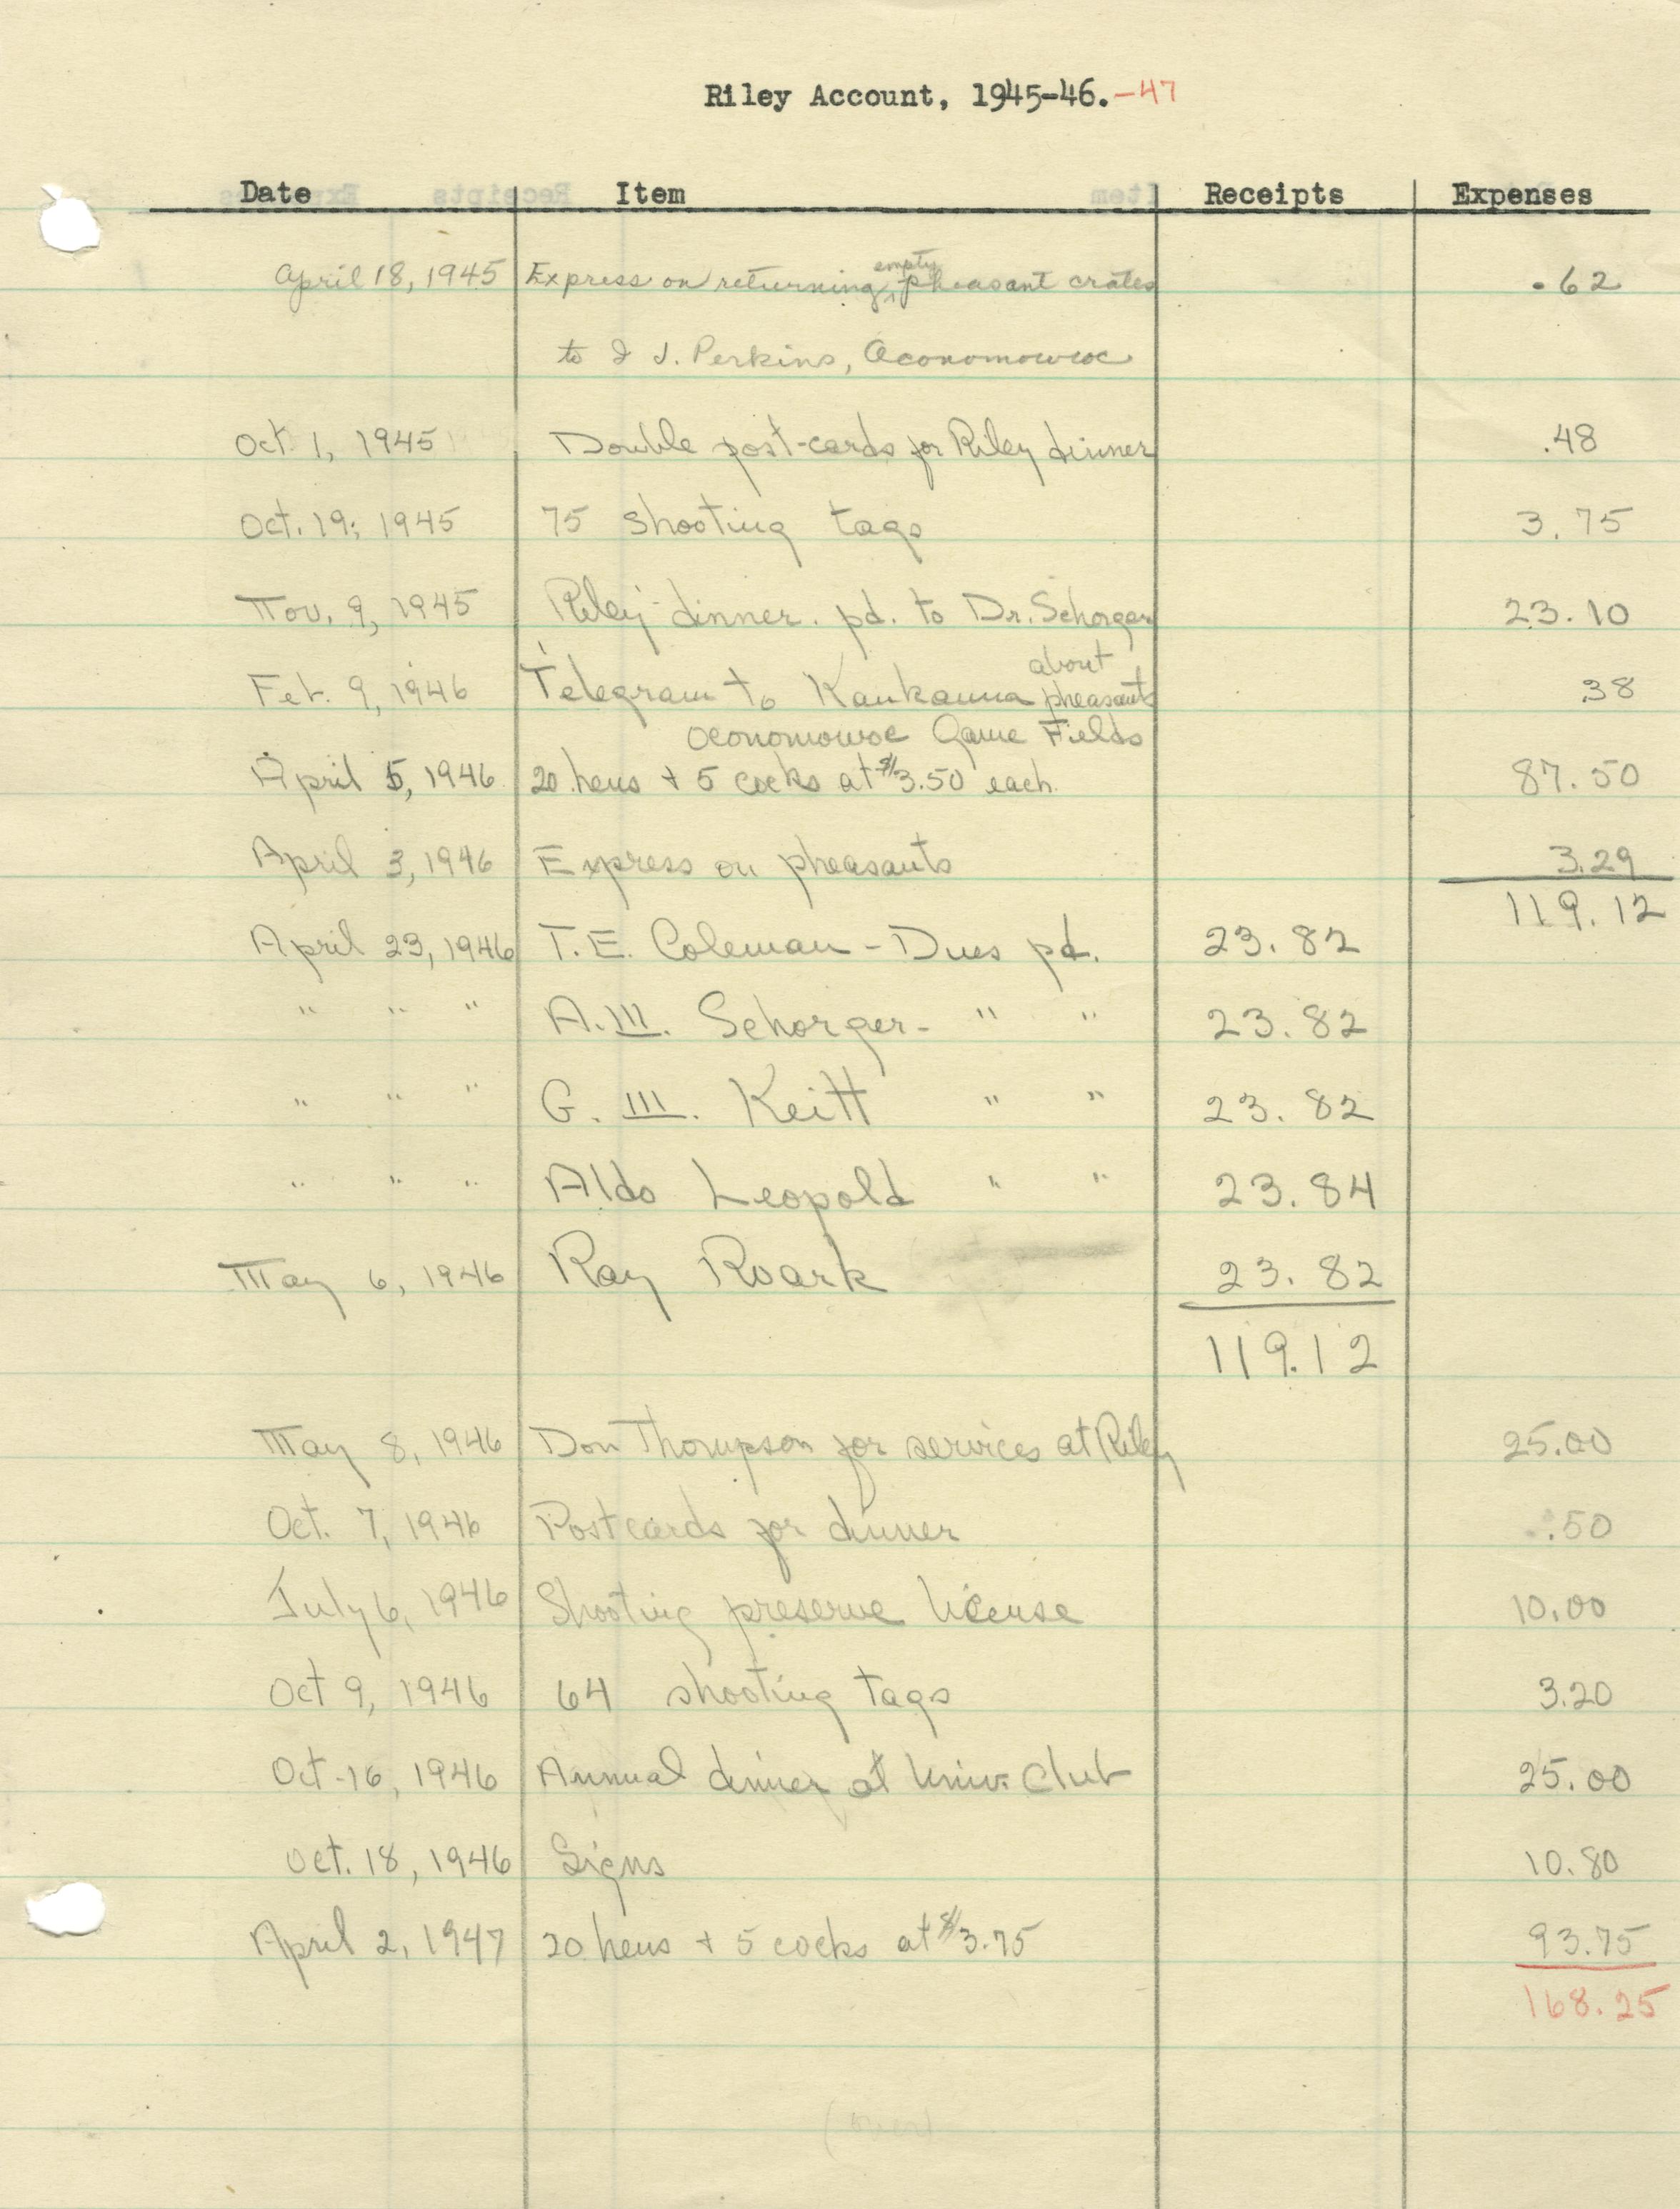 Riley Account, 1945-46.-47
Date Item Receipts Expenses
April 18, 1945 Express on returning empty pheasant crates .62
to J. Perkins, Oconomowoc
Oct. 1, 1945 Double post-cards for Riley dinner .48
Oct. 19, 1945 75 shooting tags 3.75
Nov. 9, 1945 Riley dinner. pd. to Dr. Schorger 23.10
Feb. 9, 1946 Telegram to Kaukauna about pheasants .38
Oconomowoc Game Fields
April 5, 1946 20 hens + 5 cocks at $3.50 each 87.50
April 3, 1946 Express on pheasants 3.29
119.12
April 23, 1946 T.E. Coleman - Dues pd. 23.82
" " " A.W. Schorger - " " 23.82
" " " G. W. Keitt " " 23.82
" " " Aldo Leopold " " 23.84
May 6, 1946 Ray Roark 23.82
119.12
May 8, 1946 Don Thompson for services at Riley 25.00
Oct. 7, 1946 Postcards for dinner .50
July 6, 1946 Shooting preserve license 10.00
Oct 9, 1946 64 shooting tags 3.20
Oct. 16, 1946 Annual dinner at Univ. Club 25.00
Oct. 18, 1946 Signs 10.80
April 2, 1947 20 hens + 5 cocks at $3.75 93.75
168.25
(over)